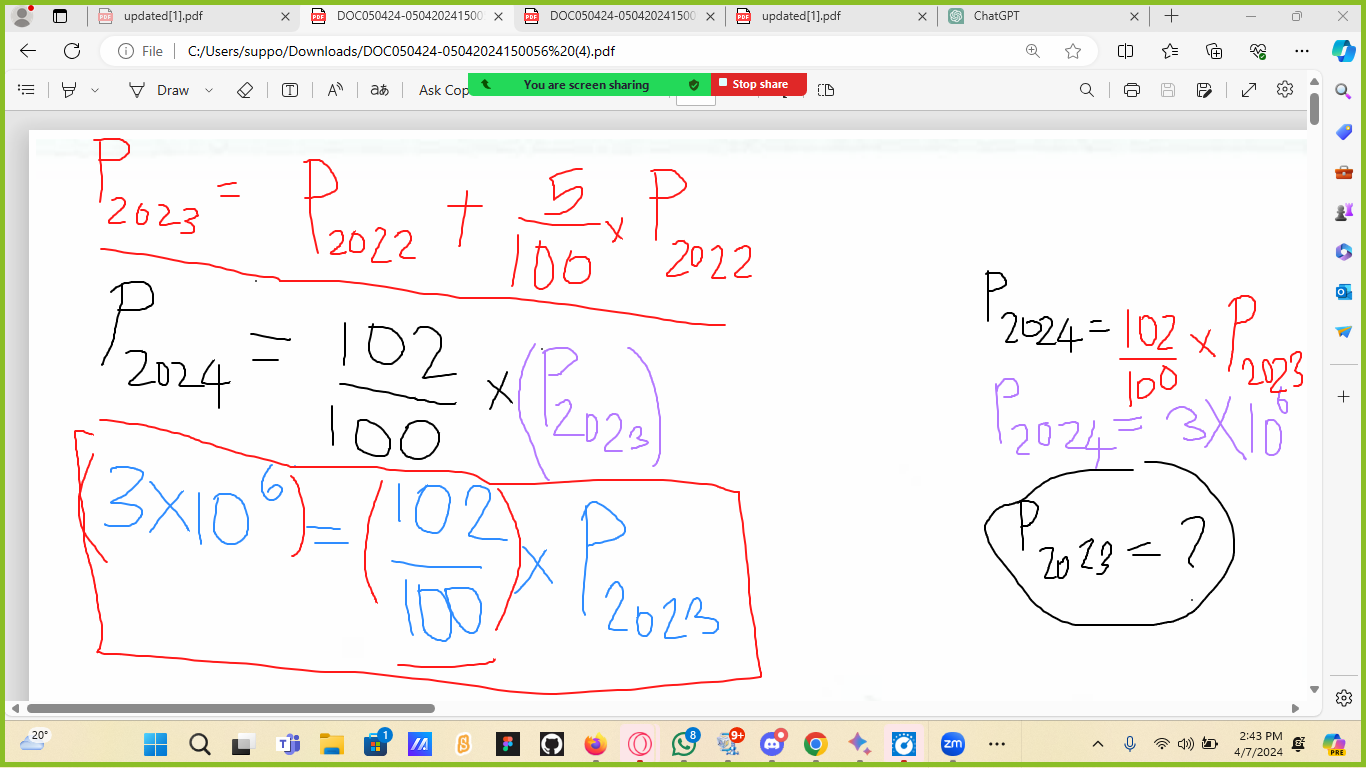 updated[1].pdf
DOC050424-0504202415005
DOC050424-050420241500
updated[1].pdf
ChatGPT
File
C:/Users/suppo/Downloads/DOC050424-05042024150056%20(4).pdf
Draw
Ask Cop
You are screen sharing
Stop share
P2023 = P2022 + 5/100 × P2022
P2024 = 102/100 × (P2023)
(3×10^6) = (102/100) × P2023
P2024 = 102/100 × P2023
P2024 = 3×10^6
P2023 = ?
20°
1
8
9+
2:43 PM
4/7/2024
zm
PRE